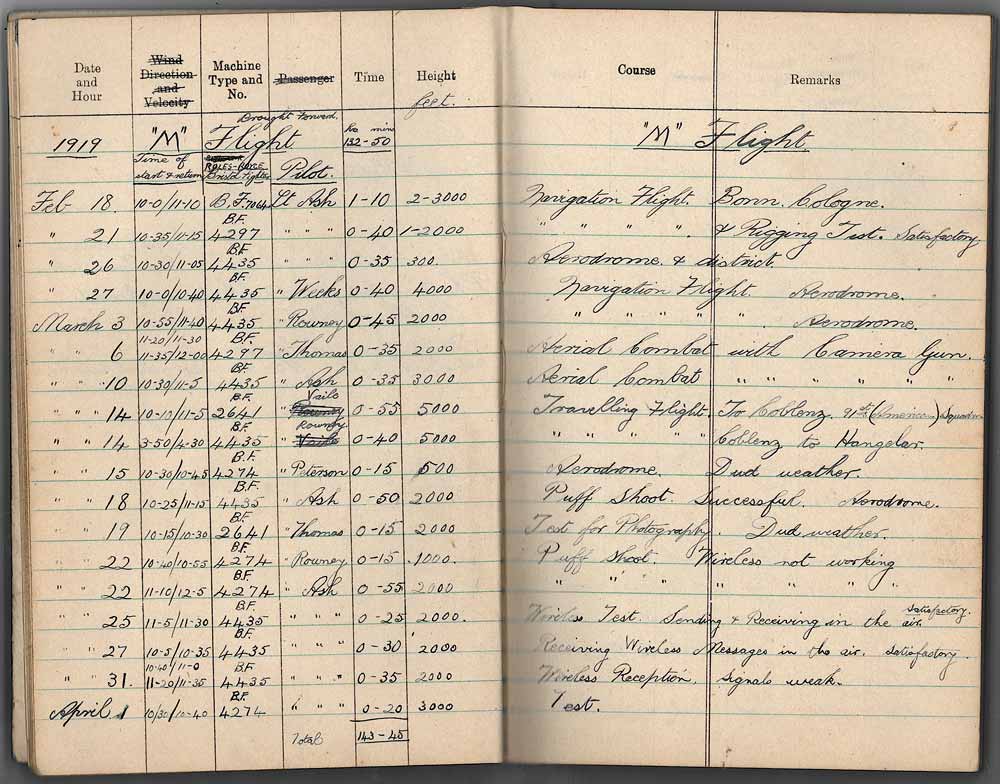 Date and Hour Wind Direction and Velocity Machine Type and No. Passenger Time Height feet. Course Remarks
Brought forward. hrs min
1919 "M" Flight 132-50 "M" Flight
Time of start & return ROLLS-ROYCE Bristol Fighter Pilot.
Feb 18. 10-0/11-10 B.F. 7064 Lt Ash 1-10 2-3000 Navigation Flight. Bonn. Cologne.
" 21 10-35/11-15 B.F. 4297 " " " 0-40 1-2000 " " " " & Rigging Test. Satisfactory
" 26 10-30/11-05 B.F. 4435 " " " 0-35 300. Aerodrome & district.
" 27 10-0/10-40 B.F. 4435 " Wicks 0-40 4000 Navigation Flight. Aerodrome.
March 3 10-55/11-40 B.F. 4435 " Rowney 0-45 2000 " " " " " " Aerodrome.
" " 6 11-20/11-30 11-35/12-00 B.F. 4297 " Thomas 0-35 2000 Aerial Combat with Camera Gun.
" " 10 10-30/11-5 B.F. 4435 " Ash 0-35 3000 Aerial Combat " " " " " "
" " " 14 10-10/11-5 B.F. 2641 " Rowney Vaile 0-55 5000 Travelling Flight. To Coblenz. 91st (American) Squadron
" " 14 3-50/4-30 B.F. 4435 " Vaile Rowney 0-40 5000 " " " " " Coblenz to Hangelar.
" " 15 10-30/10-45 B.F. 4274 " Peterson 0-15 500 Aerodrome. Dud weather.
" " 18 10-25/11-15 B.F. 4435 " Ash 0-50 2000 Puff shoot Successful. Aerodrome.
" " 19 10-15/10-30 B.F. 2641 " Thomas 0-15 2000 Test for Photography. Dud weather.
" " 22 10-40/10-55 B.F. 4274 " Rowney 0-15 1000. Puff shoot. Wireless not working
" " 22 11-10/12-5 B.F. 4274 " Ash 0-55 2000 " " " " " " "
" " 25 11-5/11-30 B.F. 4435 " " " 0-25 2000. Wireless Test. Sending & Receiving in the air. satisfactory.
" " 27 10-5/10-35 B.F. 4435 " " " 0-30 2000 Receiving Wireless Messages in the air. satisfactory.
" " 31. 10-40/11-0 11-20/11-35 B.F. 4435 " " " 0-35 2000 Wireless Reception. Signals weak.
April 1 10/30/10-40 B.F. 4274 " " " 0-20 3000 Test.
Total 143-45